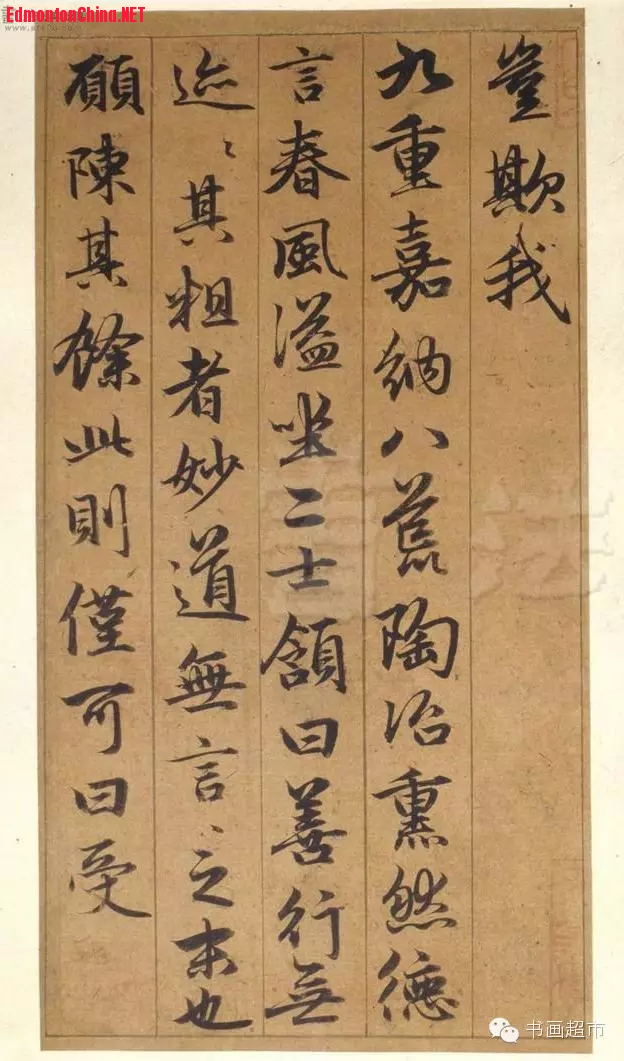 EdmontonChina.NET
豈欺我
九重嘉納八荒陶冶熏然德
言春風溢坐二士頷曰善行無
迹〻其粗者妙道無言〻之末也
願陳其餘此則僅可曰受
書法
书画超市